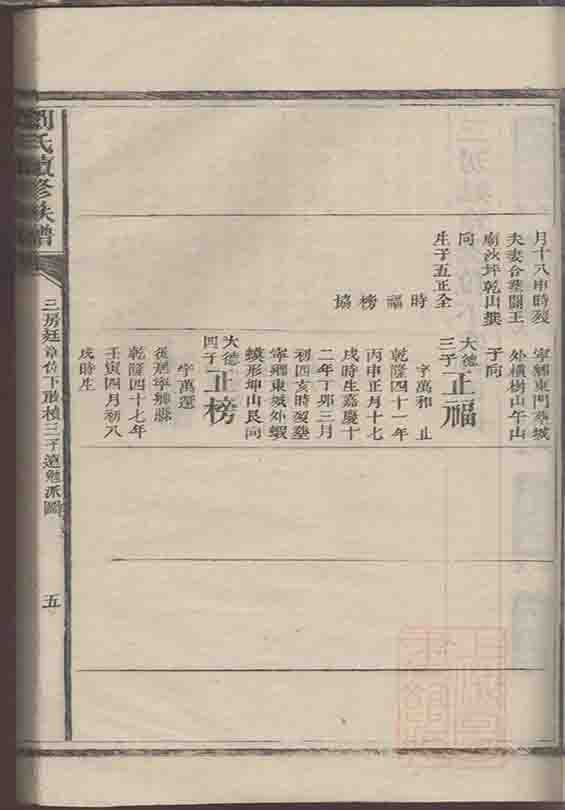 月十八申時歿
夫妻合塟關王
廟沙坪乾山㢲
向
生子五正全
時
福
榜
協
寧鄉東門𦵏城
外橫樹山午山
子向
大德三子正福
字萬和
乾隆四十一年
丙申正月十七
戌時生嘉慶十
二年丁卯三月
初四亥時歿塟
寧鄉東城外蝦
蟆形坤山艮向
大德四子正榜
字萬選
徙𢌞寧鄉縣
乾隆四十七年
壬寅四月初八
戌時生
劉氏續修族譜
三房廷章位下
三子遠勉派圖
五